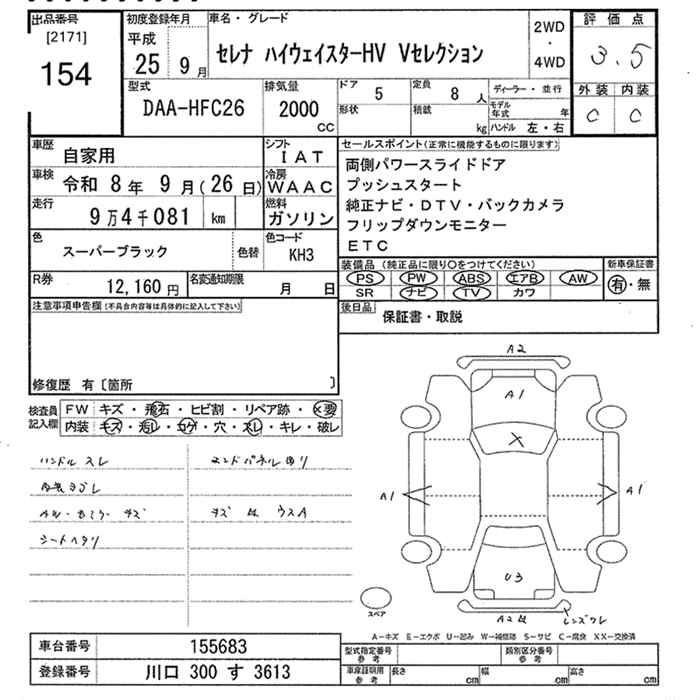 出品番号
[2171]
154
初度登録年月
平成
25 9月
車名・グレード
セレナ ハイウェイスターHV Vセレクション
2WD
・
4WD
評価点
3.5
外装 内装
C C
型式
DAA-HFC26
排気量
2000
CC
ドア 5
定員 8人
形状
積載 kg
ディーラー・並行
モデル年式 年
ハンドル 左・右
車歴 自家用
車検 令和 8年 9月(26日)
走行 9万4千081 km
シフト IAT
冷房 WAAC
燃料 ガソリン
色 スーパーブラック
色替
色コード KH3
R券 12,160円
名変通知期限 月 日
セールスポイント(正常に機能するものに限ります)
両側パワースライドドア
プッシュスタート
純正ナビ・DTV・バックカメラ
フリップダウンモニター
ETC
装備品(純正品に限り○をつけてください)
PS PW ABS エアB AW
SR ナビ TV カワ
新車保証書
有・無
後日品 保証書・取説
注意事項申告欄(不具合内容等は具体的に記入して下さい)
修復歴 有〔箇所 〕
検査員記入欄
FW キズ・飛石・ヒビ割・リペア跡・X要
内装 キズ・汚レ・コゲ・穴・スレ・キレ・破レ
ハンドル スレ
エンドパネル曲り
内装ヨゴレ
キズ 凹 ウスA
シートヘタリ
A2
A1
X
A1
A1
U3
A2凹
レンズワレ
スペア
A－キズ E－エクボ U－凹み W－補修跡 S－サビ C－腐食 XX－交換済
車台番号 155683
登録番号 川口 300 す 3613
型式指定番号 参考
類別区分番号 参考
車庫証明用 参考
長さ cm
幅 cm
高さ cm